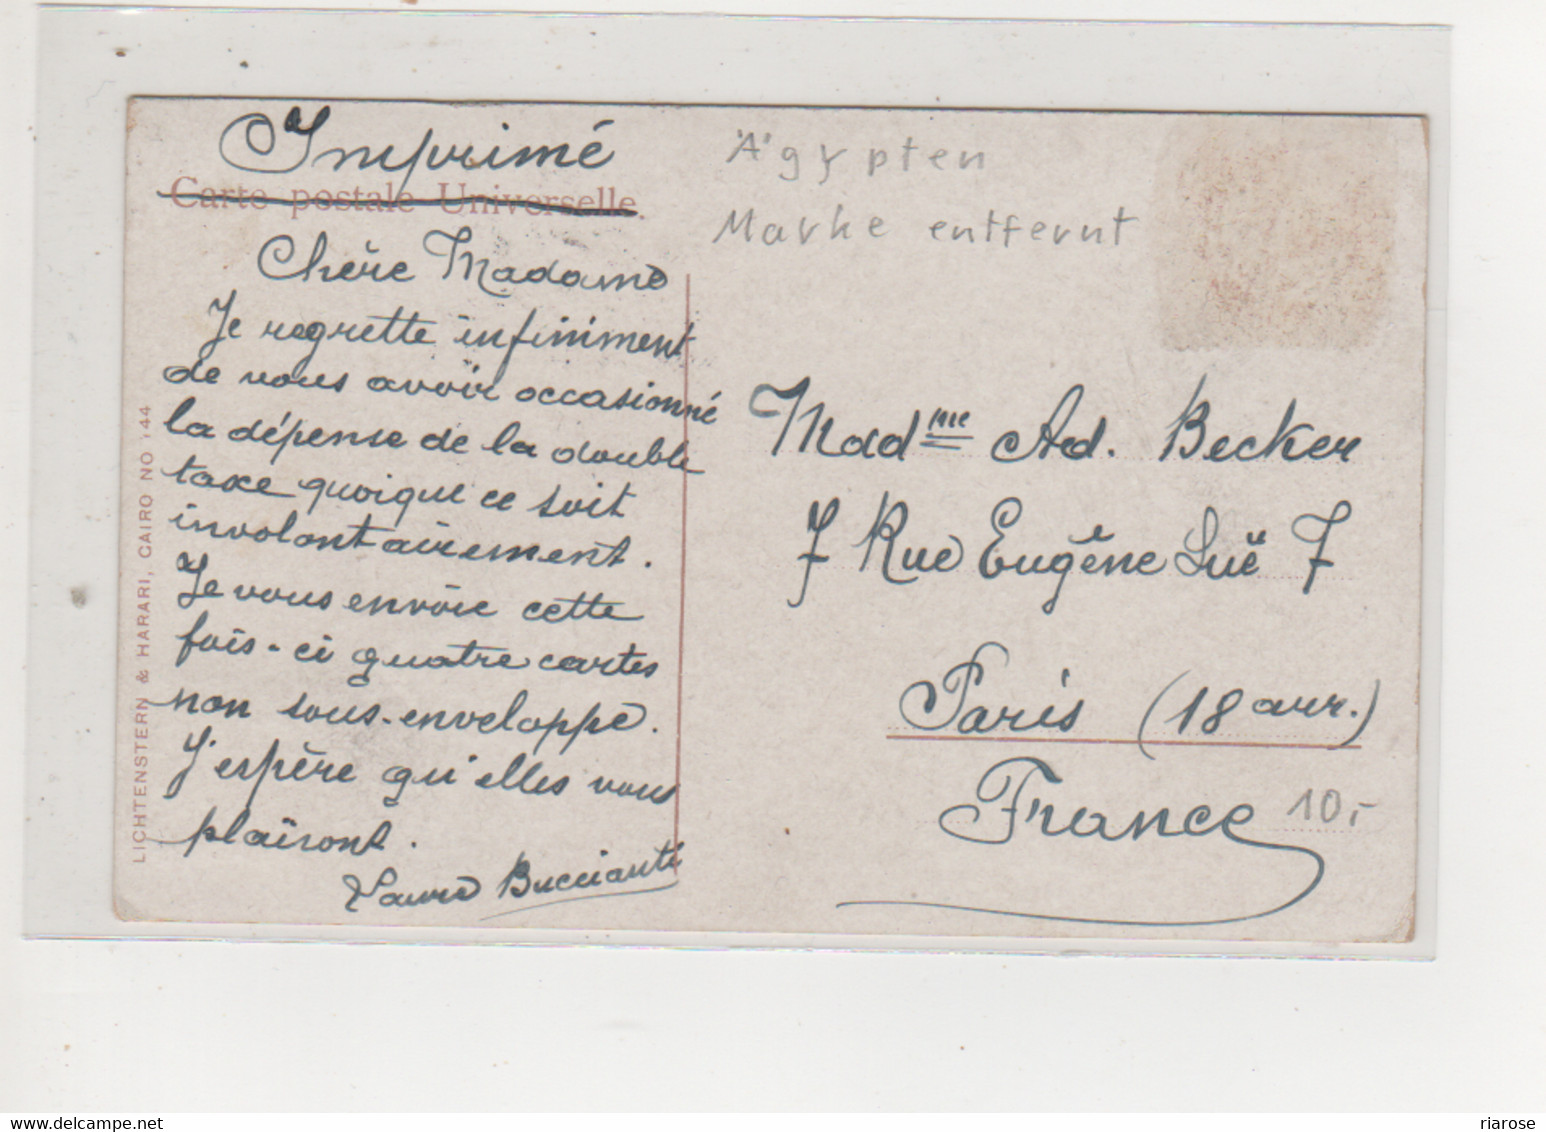 Imprimé
Carte postale Universelle.
Chère Madame
Je regrette infiniment
de vous avoir occasionné
la dépense de la double
taxe quoique ce soit
involontairement.
Je vous envoie cette
fois-ci quatre cartes
non sous-enveloppe.
J'espère qu'elles vous
plairont.
Laura Buccianti
LICHTENSTERN & HARARI, CAIRO NO 144
Ägypten
Marke entfernt
Madme Ad. Becker
7 Rue Eugène Suë 7
Paris (18 arr.)
France
10,-
delcampe.net
riarose